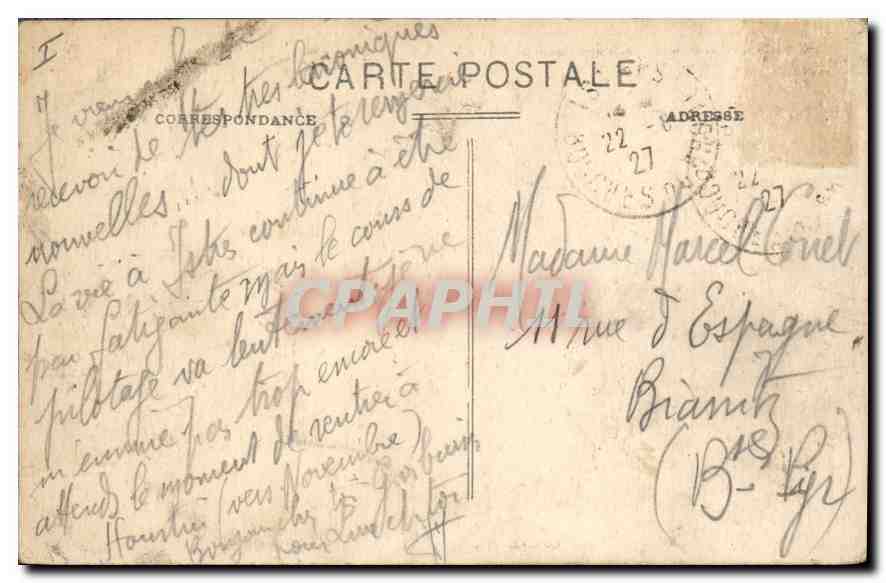 I
CARTE POSTALE
CORRESPONDANCE
ADRESSE
Je viens de
recevoir de tes très laconiques
nouvelles... dont je te remercie
La vie à Istres continue à être
peu fatigante mais le cours de
pilotage va lentement je ne
m'ennuie pas trop encore et
attends le moment de rentrer à
Hourtin (vers Novembre)
22
27
22
27
Madame Marcel
11 rue d'Espagne
Biarritz
(Bses Pyr)
CPAPHIL